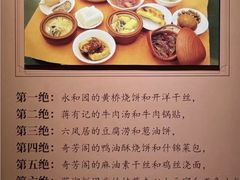 第一绝：永和园的黄桥烧饼和开洋干丝，
第二绝：蒋有记的牛肉汤和牛肉锅贴，
第三绝：六凤居的豆腐涝和葱油饼，
第四绝：奇芳阁的鸭油酥烧饼和什锦菜包，
第五绝：奇芳阁的麻油素干丝和鸡丝浇面，